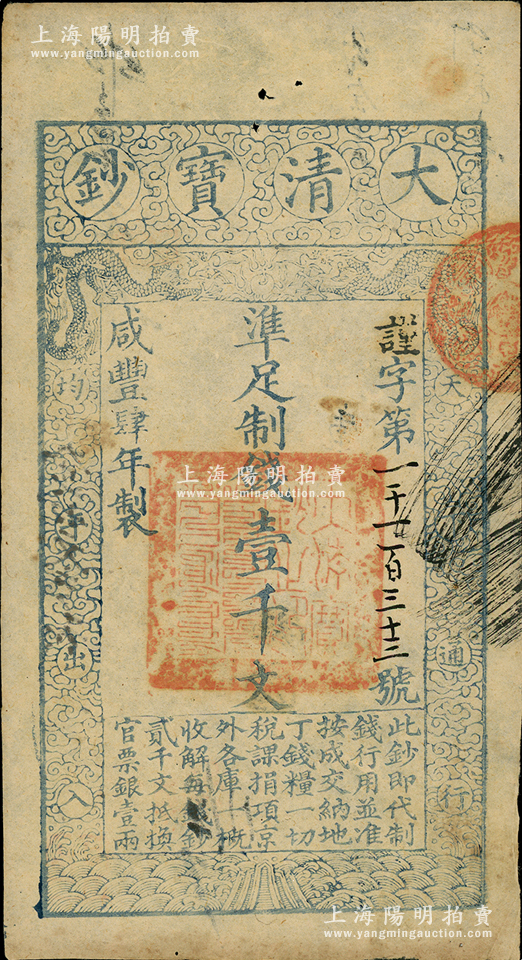 上海陽明拍賣
www.yangmingauction.com
大清寶鈔
天
通行
均
出入
謹字第一千七百三十三號
準足制錢壹千文
咸豐肆年製
上海陽明拍賣
www.yangmingauction.com
此鈔即代制
錢行用並准
按成交納地
丁錢糧一切
稅課捐項京
外各庫一概
收解每錢鈔
貳千文抵換
官票銀壹兩
上海陽明拍賣
www.yangmingauction.com